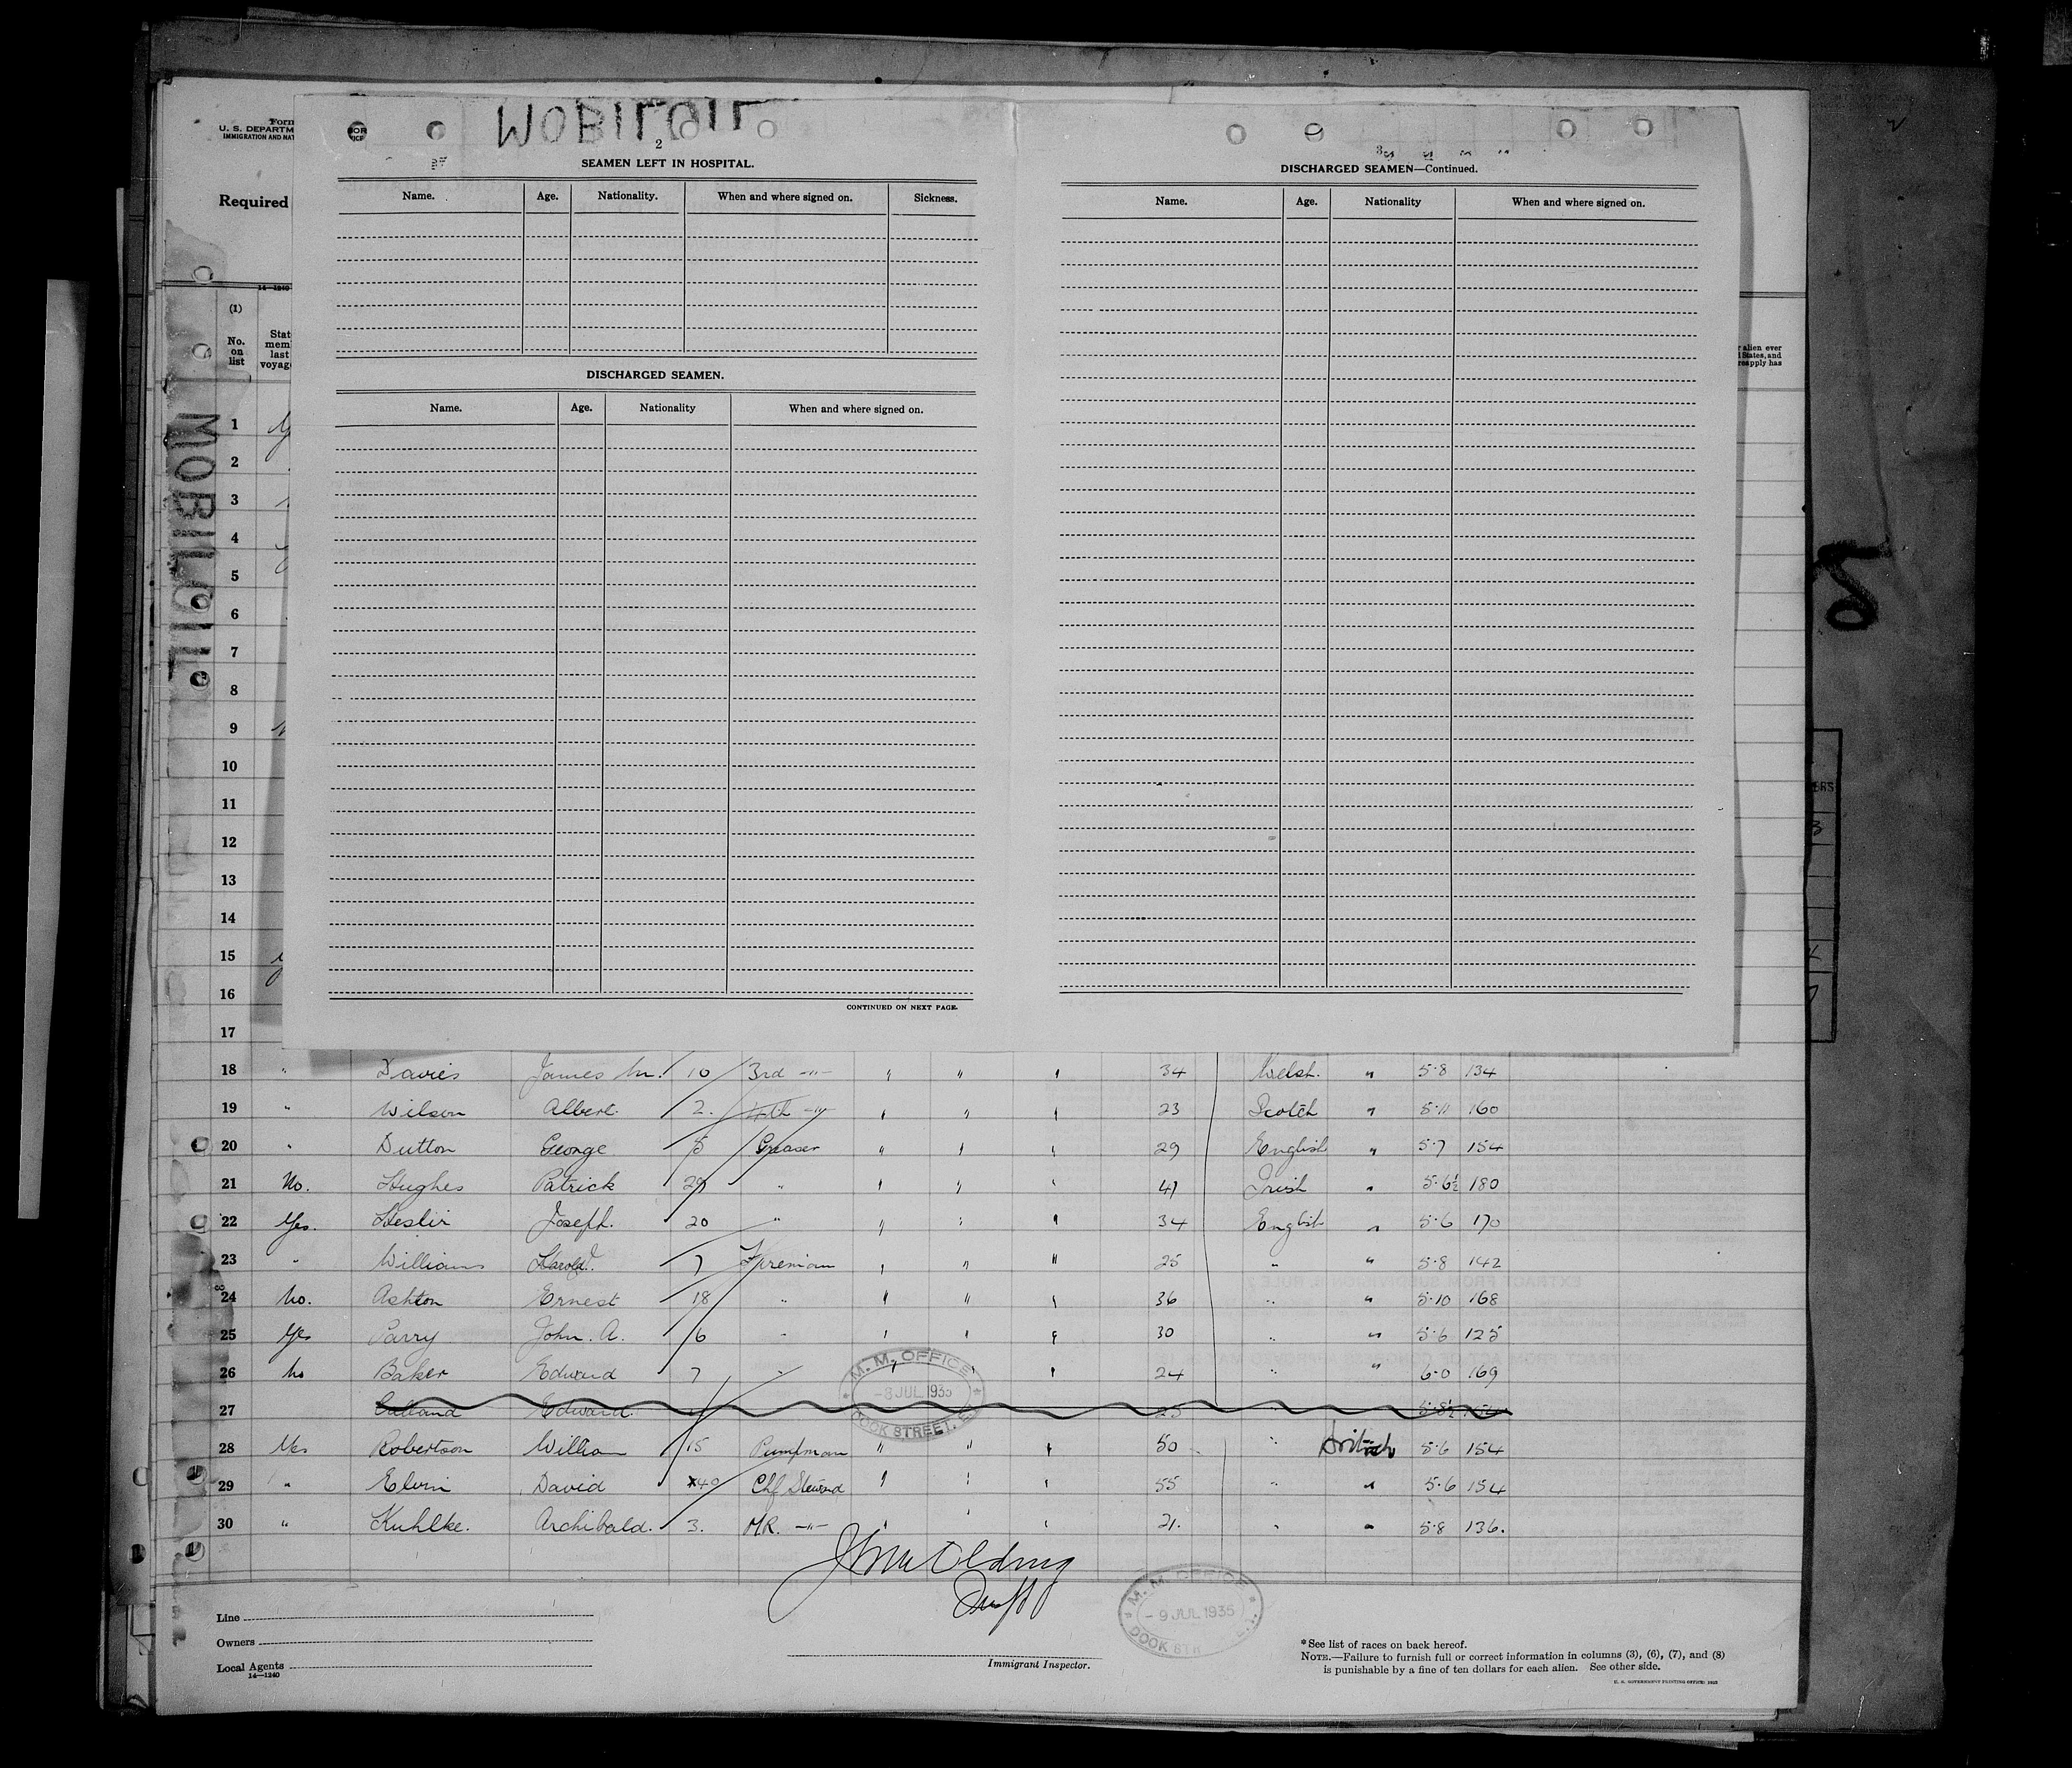 Form
U. S. DEPARTM
IMMIGRATION AND NAT
Required
14—1240
(1)
No. on list
Stat
mem
last
voyage
MOBILOIL
MOBILOIL
2
SEAMEN LEFT IN HOSPITAL.
Name. Age. Nationality. When and where signed on. Sickness.
DISCHARGED SEAMEN.
Name. Age. Nationality When and where signed on.
CONTINUED ON NEXT PAGE.
3
DISCHARGED SEAMEN—Continued.
Name. Age. Nationality When and where signed on.
r alien ever
d States, and
reapply has
1
2
3
4
5
6
7
8
9
10
11
12
13
14
15
16
17
18 " Davies James M. 10 3rd —"— " " " 34 Welsh. " 5·8 134
19 " Wilson Albert. 2. 4th —"— " " " 23 Scotch " 5·11 160
20 " Dutton George 5 Greaser " " " 29 English " 5·7 154
21 No. Hughes Patrick 29 " " " " 41 Irish " 5·6½ 180
22 Yes. Heslir Joseph. 20 " " " " 34 English " 5·6 170
23 " Williams Harold J. 7 Fireman " " " 25 " " 5·8 142
24 No. Ashton Ernest 18 " " " " 36 " " 5·10 168
25 Yes Parry John. A. 6 " " " " 30 " " 5·6 125
26 No Baker Edward 7 " " " " 24 " " 6·0 169
27 Edward. 25 " 5·8½
28 Yes Robertson William 15 Pumpman " " " 50 " British 5·6 154
29 " Elvin David 40 Chf Steward " " " 55 " " 5·6 154
30 " Kuhlke. Archibald. 3. M.R. —"— " " " 21. " " 5·8 136.
M. M. OFFICE
-8 JUL 1935
DOCK STREET, E.
M. M. OFFICE
-9 JUL 1935
DOCK STR E.
Line
Owners
Local Agents
14—1240
Immigrant Inspector.
*See list of races on back hereof.
NOTE.—Failure to furnish full or correct information in columns (3), (6), (7), and (8)
is punishable by a fine of ten dollars for each alien. See other side.
U. S. GOVERNMENT PRINTING OFFICE: